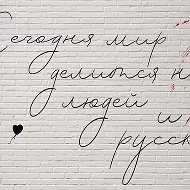 Сегодня мир
делится н
людей
и
русск